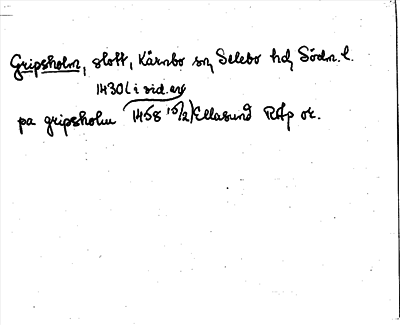 Gripsholm, slott, Kärnbo sn, Selebo hd, Södm. l.
1430 (i vid. av
pa gripsholm 1458 15/2) Ellasund RAp or.